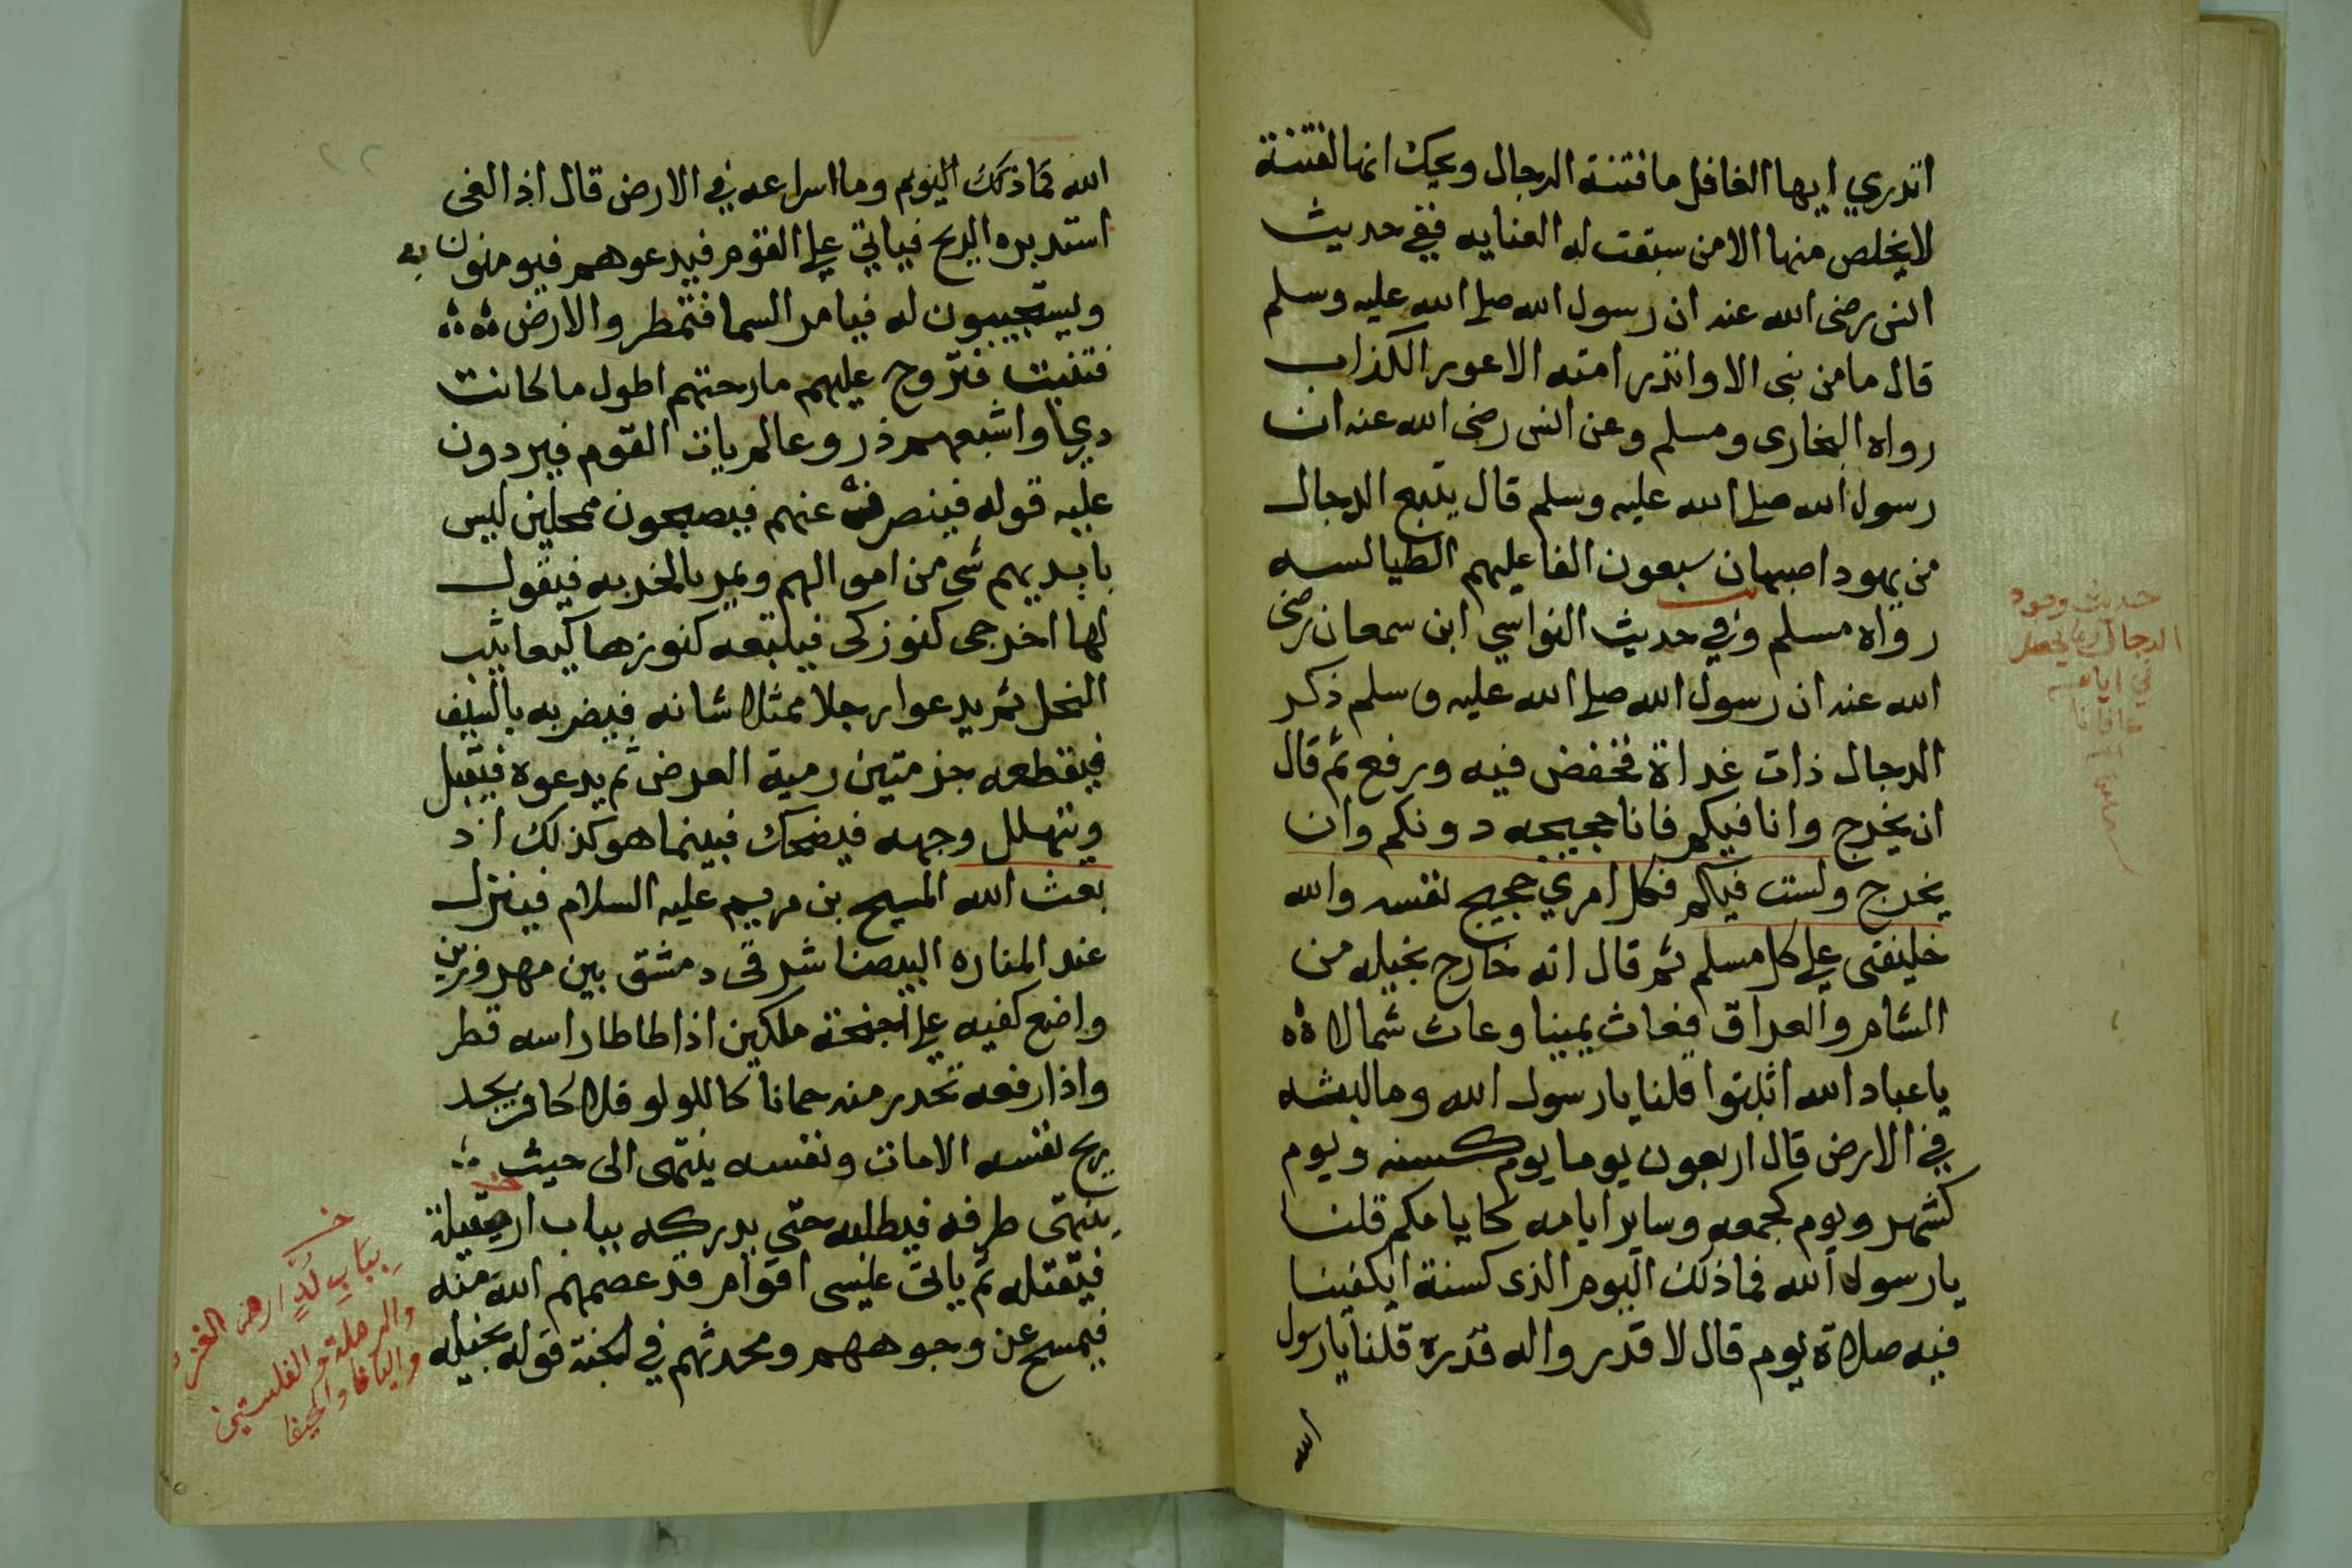 اتدري ايها الغافل ما فتنة الدجال ويحك انها لفتنة
لا يخلص منها الا من سبقت له العنايه ففي حديث
انس رضى الله عنه ان رسول الله صلى الله عليه وسلم
قال ما من نبى الا وانذر امته الاعور الكذاب
رواه البخارى ومسلم وعن انس رضى الله عنه ان
رسول الله صلى الله عليه وسلم قال يتبع الدجال
من يهود اصبهان سبعون الفا عليهم الطيالسه
رواه مسلم وفي حديث النواسي ابن سمعان رضى
الله عنه ان رسول الله صلى الله عليه وسلم ذكر
الدجال ذات غداة فخفض فيه ورفع ثم قال
ان يخرج وانا فيكم فانا حجيجه دونكم وان
يخرج ولست فيكم فكل امري حجيج نفسه والله
خليفتى على كل مسلم ثم قال انه خارج بخيله من
الشام والعراق فعاث يمينا وعاث شمالا
يا عباد الله اثبتوا قلنا يا رسول الله وما لبثه
في الارض قال اربعون يوما يوم كسنه ويوم
كشهر ويوم كجمعه وساير ايامه كايامكم قلنا
يا رسول الله فما ذلك اليوم الذى كسنة ايكفينا
فيه صلاة يوم قال لا قدر واله قدره قلنا يا رسول
الله
حديث وجود
الدجال وما يحصل
في ايامه
عافانا
الله
الله فما ذلك اليوم وما اسراعه في الارض قال اذ الغى
استدبره الريح فياتي على القوم فيدعوهم فيومنون به
ويستجيبون له فيامر السما فتمطر والارض
فتنبت فتروح عليهم مارحتهم اطول ما كانت
دريا واشبعهم ذروعا لم يات القوم فيردون
عليه قوله فينصرف عنهم فيصبحون ممحلين ليس
بايديهم شى من اموالهم ويمر بالخربه فيقول
لها اخرجى كنوزكى فيلتبعه كنوزها كيعاثيب
النحل ثم يدعوا رجلا ممثلا شانه فيضربه بالسيف
فيقطعه جزمتين رمية العرض ثم يدعوه فيقبل
ويتهلل وجهه فيضحك فبينما هو كذلك اذ
بعث الله المسيح بن مريم عليه السلام فينزل
عند المناره البيضا شرقى دمشق بين مهروزتين
واضع كفيه على اجنحة ملكين اذا طاطا راسه قطر
واذا رفعه تحدر منه جمانا كاللولو فلا كافر يجد
ريح نفسه الا مات ونفسه ينتهى الى حيث
ينتهى طرفه فيطلبه حتى يدركه بباب ارض
فيقتله ثم ياتى عليسى اقوام قد عصمهم الله منه
فيمسح عن وجوههم ومحدثهم في الجنة قوله بخيله
بباب لد ارض الغزه
والرملة والفلستين
واليافا والحيفا